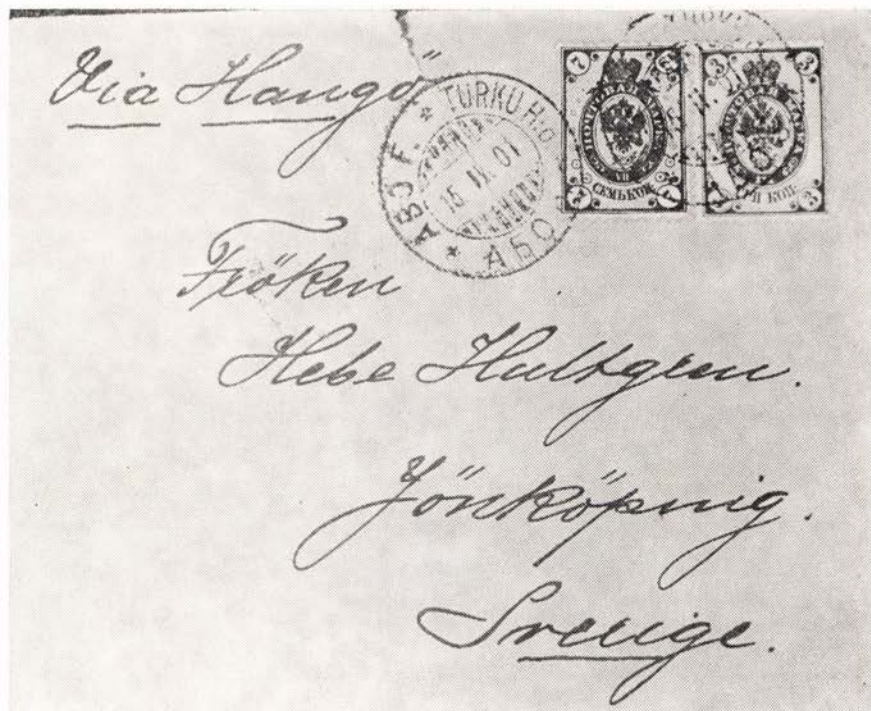 Via Hangö
ÅBO F. * TURKU H:o * АБО
15. II. 01
7 7
СЕМЬ КОП.
7 7
3 3
ТРИ КОП.
3 3
Fröken
Hebe Hultgren.
Jönköping.
Sverige.